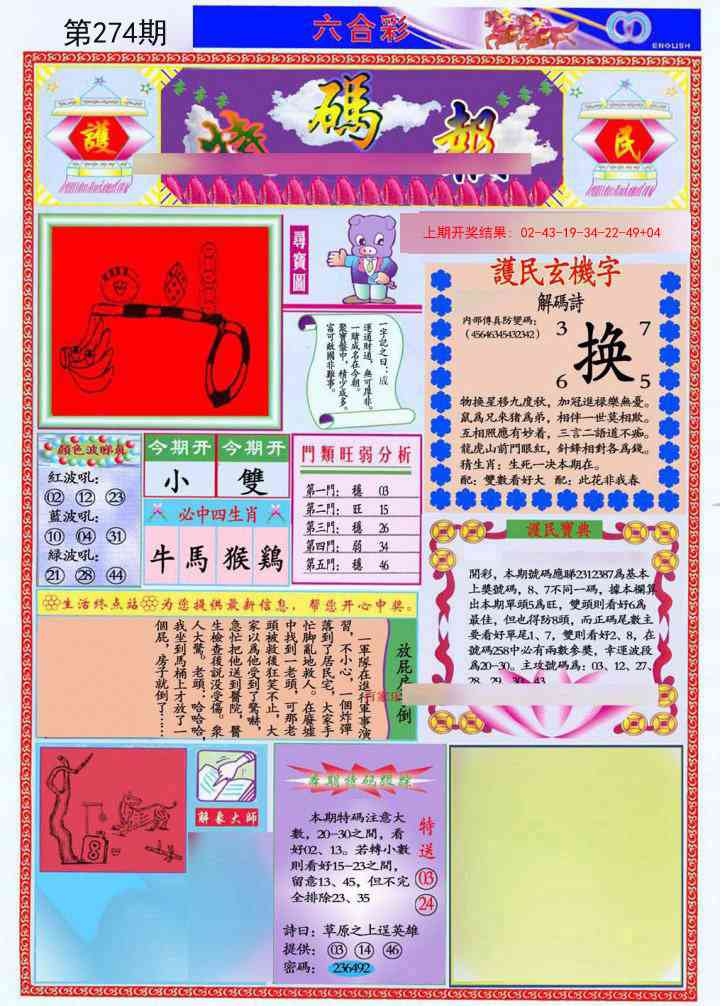 第274期
六合彩
ENGLISH
護
碼
報
民
上期开奖结果: 02-43-19-34-22-49+04
尋寶圖
一字記之曰:成
運通財通，無可厚非。
一賭成名在今朝。
聚寶盤中，積少成多。
富可敵國非難事。
護民玄機字
解碼詩
内部傳真防變碼:
(45646345432342)
3
7
换
6
5
物换星移九度秋，加冠進禄樂無憂。
鼠爲兄來猪爲弟，相伴一世莫相欺。
互相照應有妙着，三言二語道不痴。
龍虎山前門眼紅，針鋒相對各爲錢。
猜生肖：生死一决本期在。
配：雙數看好大 配：此花非我春
顔色波
紅波吼:
02 12 23
藍波吼:
10 04 31
緑波吼:
21 28 44
今期开 今期开
小 雙
必中四生肖
牛 馬 猴 鷄
門類旺弱分析
第一門: 穩 03
第二門: 旺 15
第三門: 穩 26
第四門: 弱 34
第五門: 穩 46
護民寶典
開彩，本期號碼應睇2312387爲基本
上獎號碼，8、7不同一碼，據本欄算
出本期單頭5爲旺，雙頭則看好6爲
最佳，但也得防8頭，而正碼尾數主
要看好單尾1、7，雙則看好2、8，在
號碼258中必有兩數参奬，幸運波段
爲20-30。主攻號碼爲：03、12、27、
28 29 30 43
生活终点站 为您提供最新信息，帮您开心中奖。
放屁 倒
一軍隊在進行軍事演
習，不小心，一個炸彈
落到了居民宅，大家手
忙脚亂地救人。在廢墟
中找到一老頭，可那老
頭被救後狂笑不止，大
家以爲他受到了驚嚇，
急忙把他送到醫院，醫
生檢查後説没受傷。衆
人大驚。老頭：哈哈哈，
我坐到馬桶上才放了一
個屁，房子就倒了……
8
解象大師
本期特碼注意大
數，20-30之間，看
好02、13。若轉小數
則看好15-23之間，
留意13、45，但不完
全排除23、35
特送
03
24
詩曰：草原之上逞英雄
提供: 03 14 46
密碼: 236492